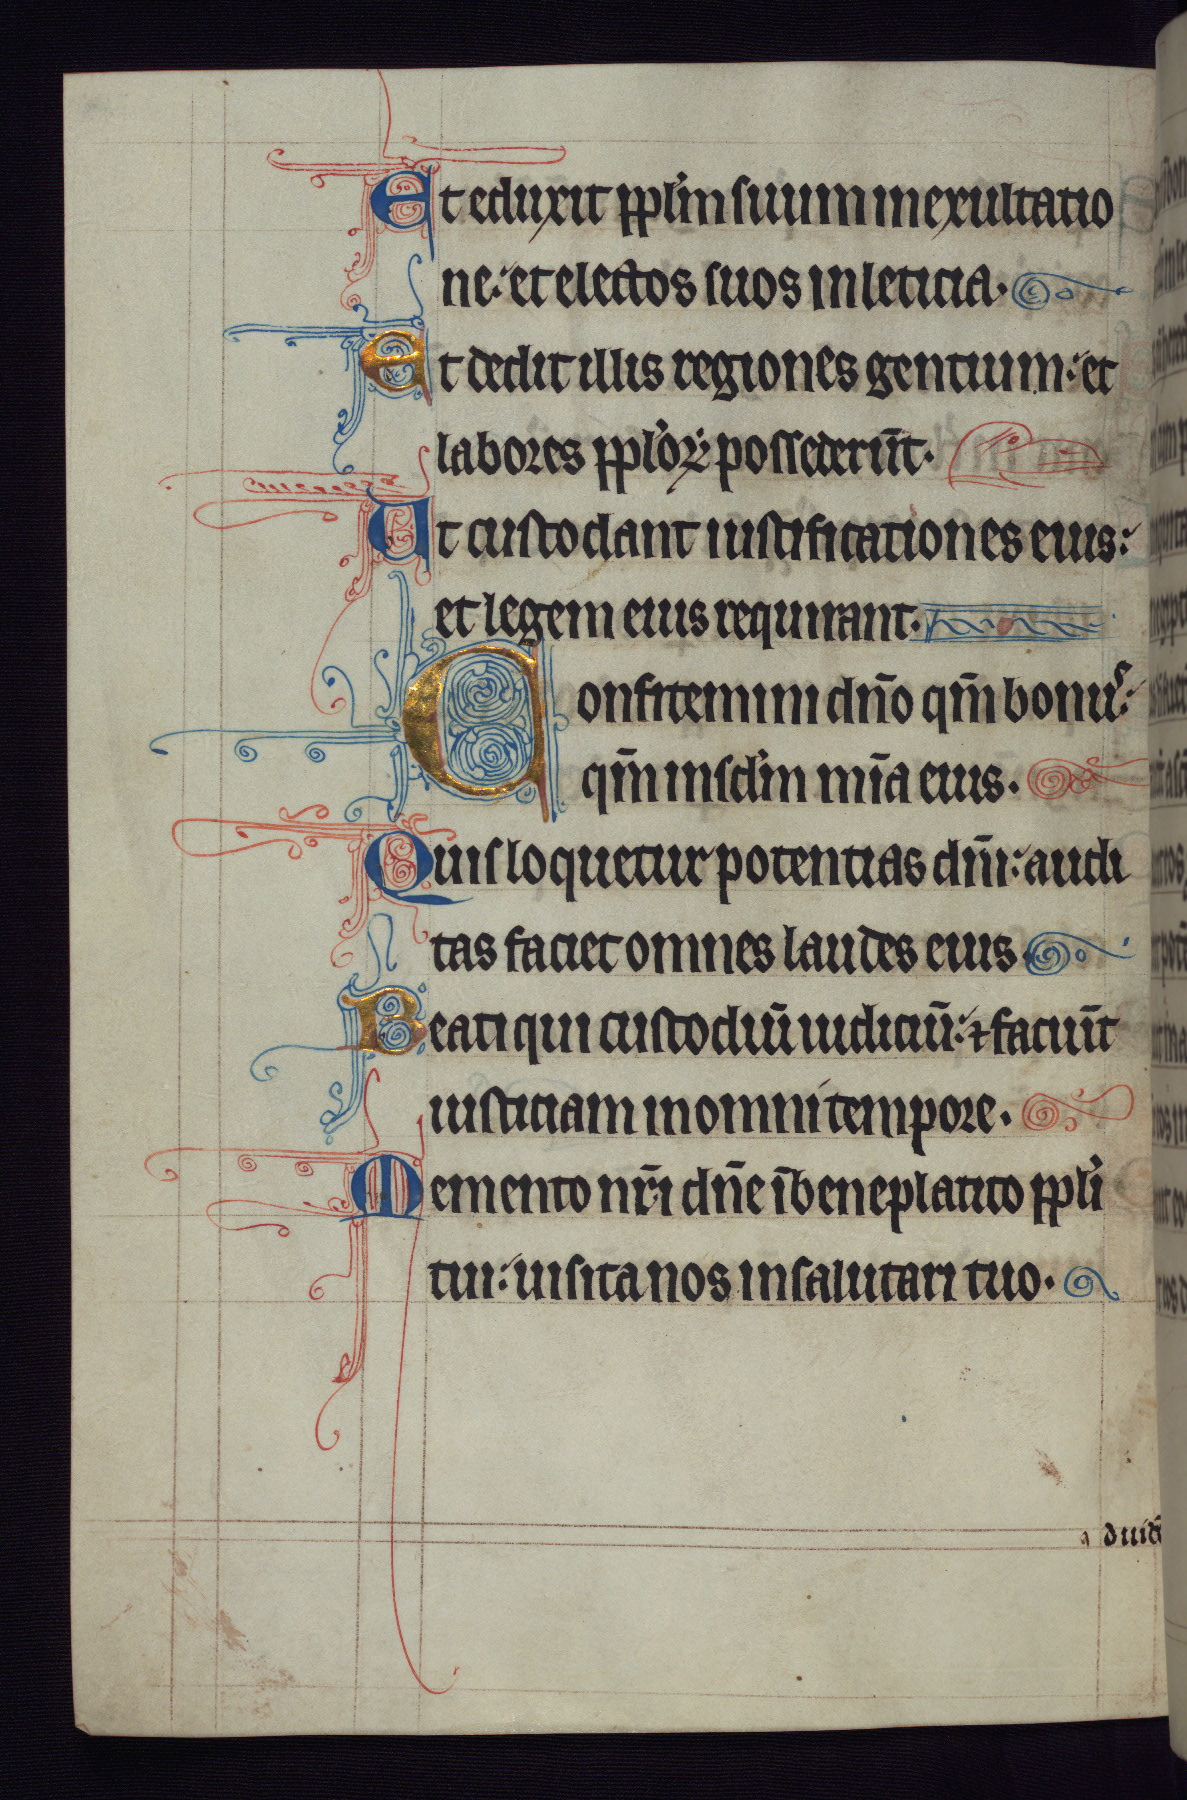 Et eduxit ppl'm suum in exultatio
ne: et electos suos in leticia.
Et dedit illis regiones gentium: et
labores ppl'oꝝ possederūt.
Ut custodant iustificationes eius:
et legem eius requirant.
Confitemini dn̄o qm̄ bonus:
qm̄ in scl'm mīa eius.
Quis loquetur potentias dn̄i: audi
tas faciet omnes laudes eius.
Beati qui custodiūt iudiciū: ⁊ faciūt
iusticiam in omni tempore.
Memento nr̄i dn̄e ī beneplacito ppl'i
tui: uisita nos in salutari tuo.